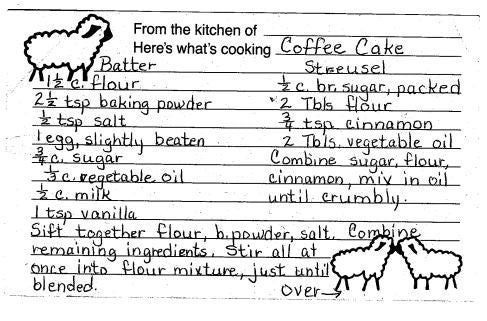 From the kitchen of
Here's what's cooking Coffee Cake
Batter
1½ c. flour
2½ tsp baking powder
½ tsp salt
1 egg, slightly beaten
¾ c. sugar
⅓ c. vegetable oil
½ c. milk
1 tsp vanilla
Streusel
½ c. br. sugar, packed
2 Tbls flour
¾ tsp cinnamon
2 Tbls. vegetable oil
Combine sugar, flour,
cinnamon, mix in oil
until crumbly.
Sift together flour, b. powder, salt. Combine
remaining ingredients. Stir all at
once into flour mixture, just until
blended.
over→